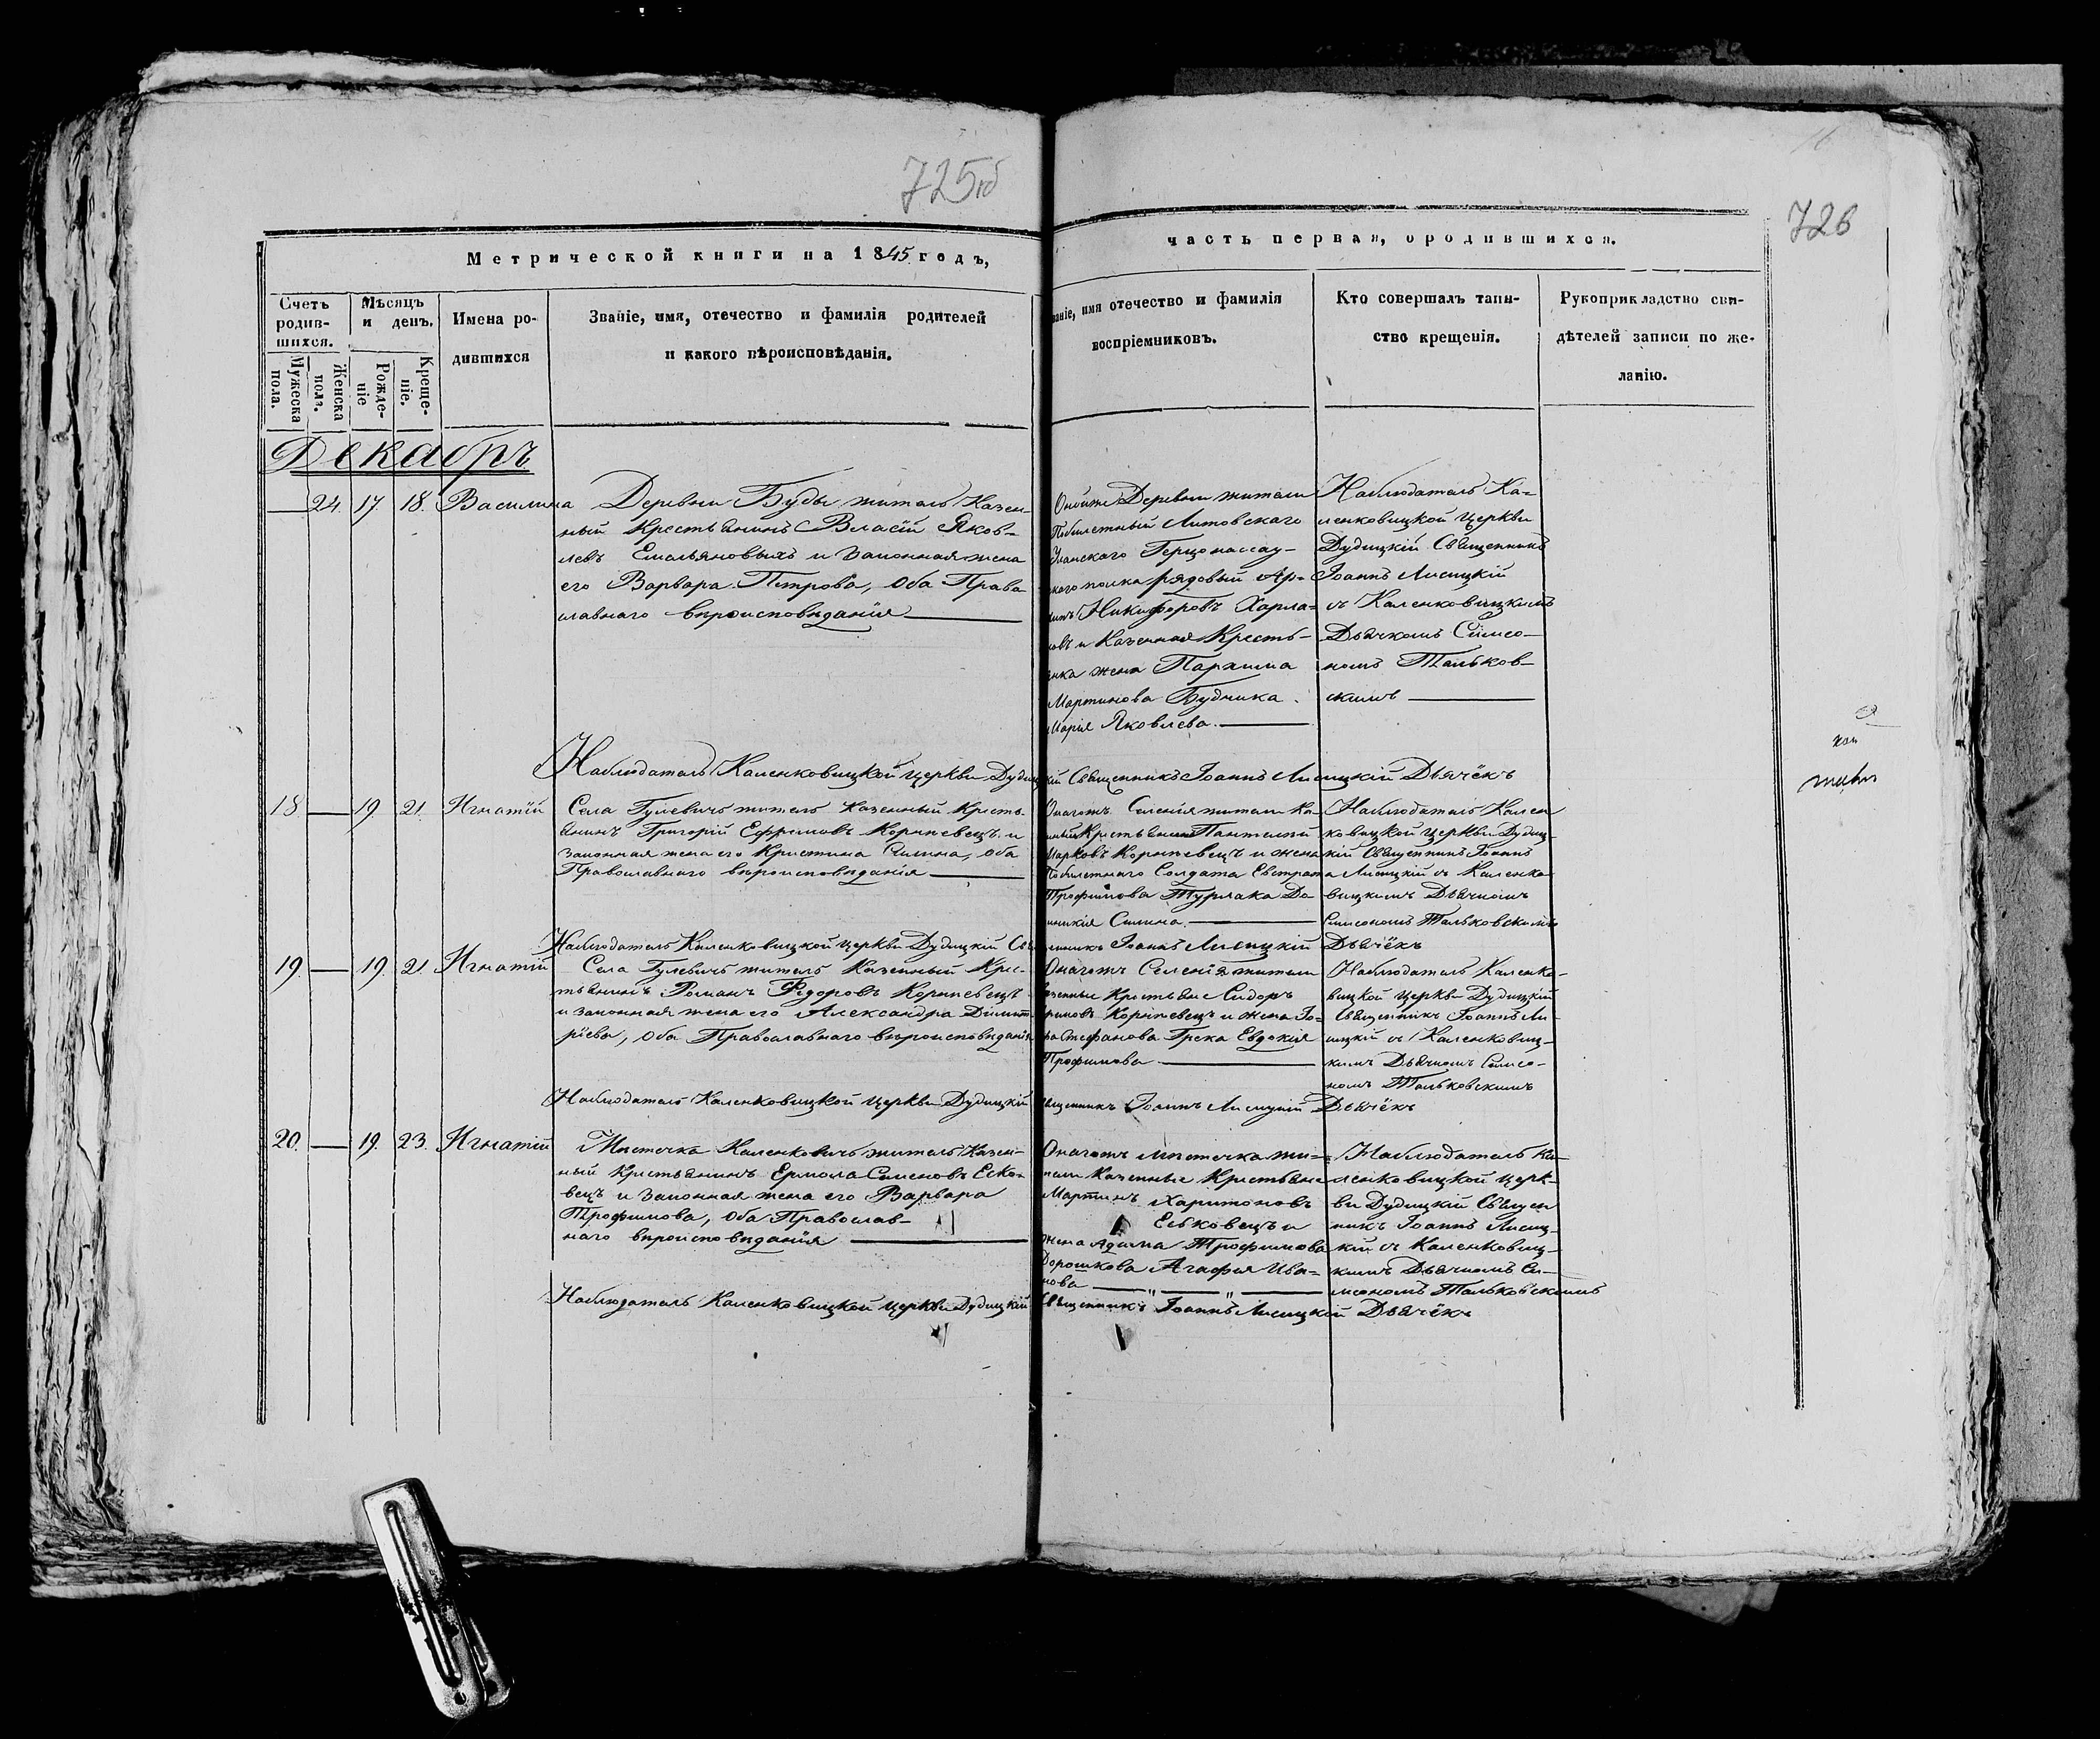 725об
726
Метрической книги на 1845 годъ,
часть первая, ородившихся.
Счетъ родив-
шихся.
Мужеска пола.
Женска пола.
Мѣсяцъ и день.
Рожде-
ніе
Креще-
ніе.
Имена ро-
дившихся
Званіе, имя, отечество и фамилія родителей
и какого вѣроисповѣданія.
званіе, имя отечество и фамилія
воспріемниковъ.
Кто совершалъ таин-
ство крещенія.
Рукоприкладство сви-
дѣтелей записи по же-
ланію.
Декабрь
24. 17. 18. Василина
Деревни Буды житель Казен
ный Крестьянинъ Власій Яков-
левъ Емальяновыхъ и Законная жена
его Варвара Петрова, Оба Право
славнаго вѣроисповѣданія
Деревни жители
Побилетный Литовскаго
Уланскаго Герцонассау-
скаго полка рядовый Ар-
Никифоровъ Харла-
овъ и Казенная Кресть-
янка жена Пархима
Мартинова Будника
Марія Яковлева.
Наблюдатель Ка-
ленковицкой Церкви
Дудицкій Священникъ
Іоаннъ Лисицкій
съ Каленковицкимъ
Дьячкомъ Симео-
номъ Тальков-
скимъ
Наблюдатель Каленковицкой Церкви Дудицкій Священникъ Іоаннъ Лисицкій Дьячёкъ
18 19 21. Игнатій
Села Гулевичъ житель Казенный Кресть-
янинъ Григорій Ефримовъ Корниевецъ и
законная жена его Кристина Силина, оба
Православнаго вѣроисповѣданія
Онагожъ Селенія жители Ка
Крестьянинъ Пантелей
Марковъ Корниевецъ и жена
Побилетнаго Солдата Евстрата
Трофимова Турлака До
миникія Силина.
Наблюдатель Кален
ковицкой Церкви Дудиц-
кій Священникъ Іоаннъ
Лисицкій съ Каленко
вицкимъ Дьячкомъ
Симеономъ Тальковскимъ
Наблюдатель Каленковицкой Церкви Дудицкій Священникъ Іоаннъ Лисицкій Дьячёкъ
19. 19. 21. Игнатій
Села Гулевичъ житель Казенный Крес-
тьянинъ Романъ Федоровъ Корниевецъ
и законная жена его Александра Димит-
ріева, Оба Православнаго вѣроисповѣданія
Онагожъ Селенія жители
Казенные Крестьяне Сидоръ
Корниевецъ и жена
Стефанова Грека Евдокія
Трофимова
Наблюдатель Каленко-
вицкой Церкви Дудицкій
Священникъ Іоаннъ Ли-
сицкій съ Каленковиц-
кимъ Дьячкомъ Симео-
номъ Тальковскимъ
Наблюдатель Каленковицкой Церкви Дудицкій Священникъ Іоаннъ Лисицкій Дьячёкъ
20. 19. 23. Игнатій
Мѣстечка Каленковичъ житель Казен-
ный Крестьянинъ Ермола Семеновъ Еско-
вецъ и Законная жена его Варвара
Трофимова, Оба Православ-
наго вѣроисповѣданія
Онагожъ мѣстечка жи-
тели Казенные Крестьяне
Мартинъ Харитоновъ
Еськовецъ и
жена Адама Трофимова
Дорошкова Агафія Ива-
нова
Наблюдатель Ка-
ленковицкой Церк-
ви Дудицкій Священ
никъ Іоаннъ Лисиц-
кій съ Каленковиц-
кимъ Дьячкомъ Си-
меономъ Тальковскимъ
Наблюдатель Каленковицкой Церкви Дудицкій Священникъ Іоаннъ Лисицкій Дьячёкъ